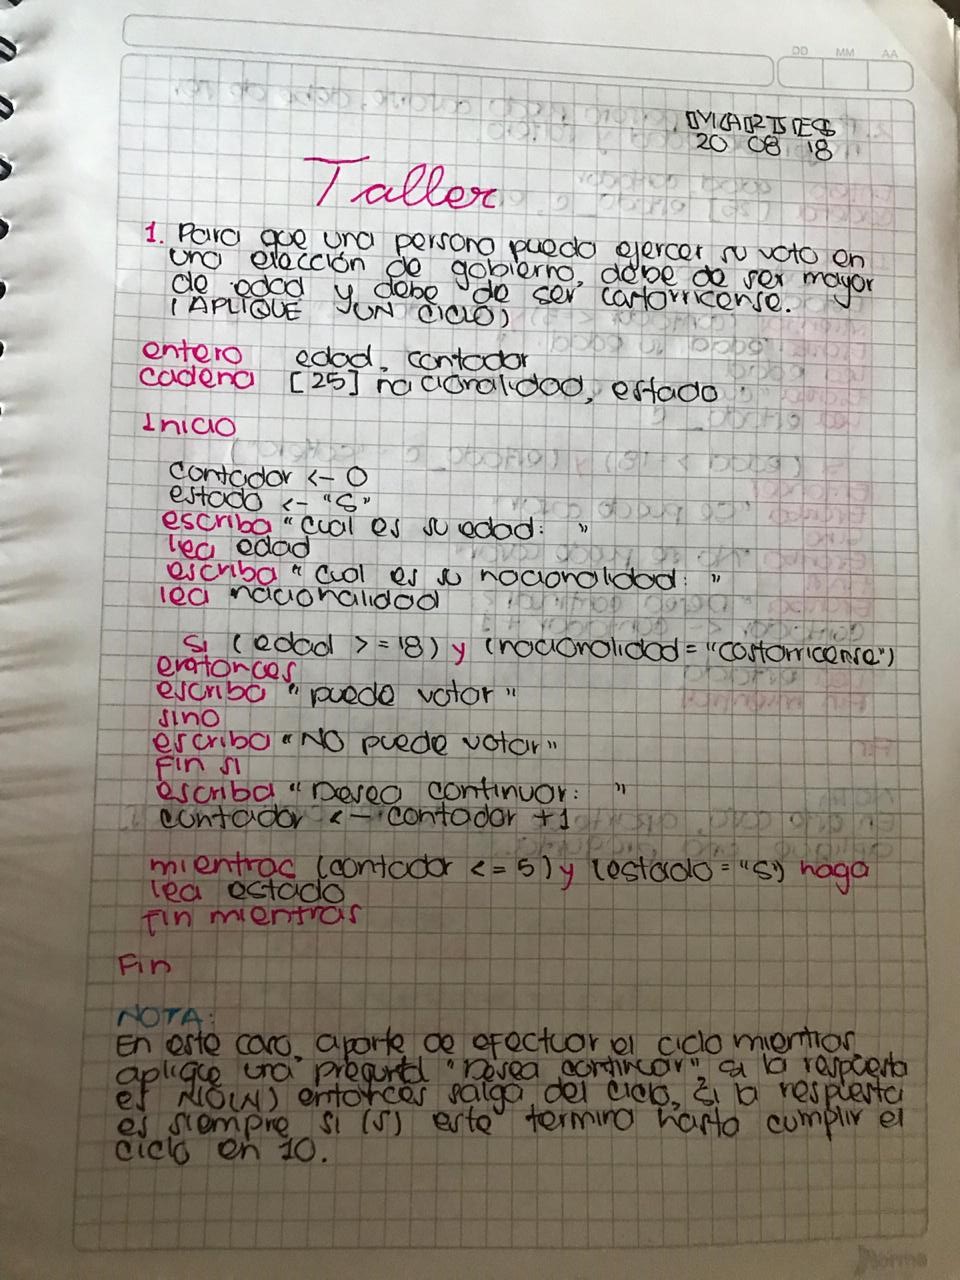 DD MM AA
MARTES
20 08 18
Taller
1. Para que una persona pueda ejercer su voto en
una elección de gobierno, debe de ser mayor
de edad y debe de ser costarricense.
(APLIQUE UN CICLO)
entero edad, contador
cadena [25] nacionalidad, estado
Inicio
contador <- 0
estado <- "S"
escriba "cual es su edad: "
lea edad
escriba "cual es su nacionalidad: "
lea nacionalidad
si (edad >= 18) y (nacionalidad = "costarricense")
entonces
escriba "puede votar"
sino
escriba "NO puede votar"
Fin si
escriba "Desea continuar: "
contador <- contador +1
mientras (contador <= 5) y (estado = "S") haga
lea estado
fin mientras
Fin
NOTA:
En este caso, aparte de efectuar el ciclo mientras
aplique una pregunta "Desea continuar" si la respuesta
es NO(N) entonces salga del ciclo, si la respuesta
es siempre si (S) este termina hasta cumplir el
ciclo en 10.
Norma